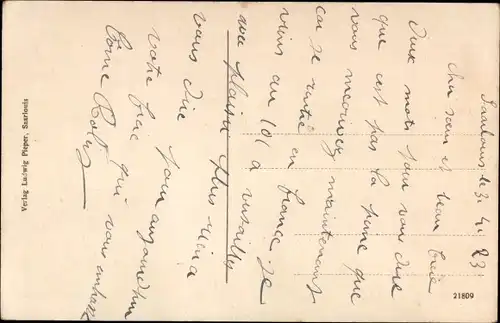 Saarlouis le 3. 4. 23
Cher sœur et beau frère
deux mots pour vous dire
que c'est pas la peine que
vous m'envoyez maintenant
car je rentre en france. Je
viens au 101 a versailles
avec plaisir plus rien a
vous dire pour aujourd'hui
votre frère qui vous embrasse
Côme
Verlag Ludwig Pieper, Saarlouis
21809